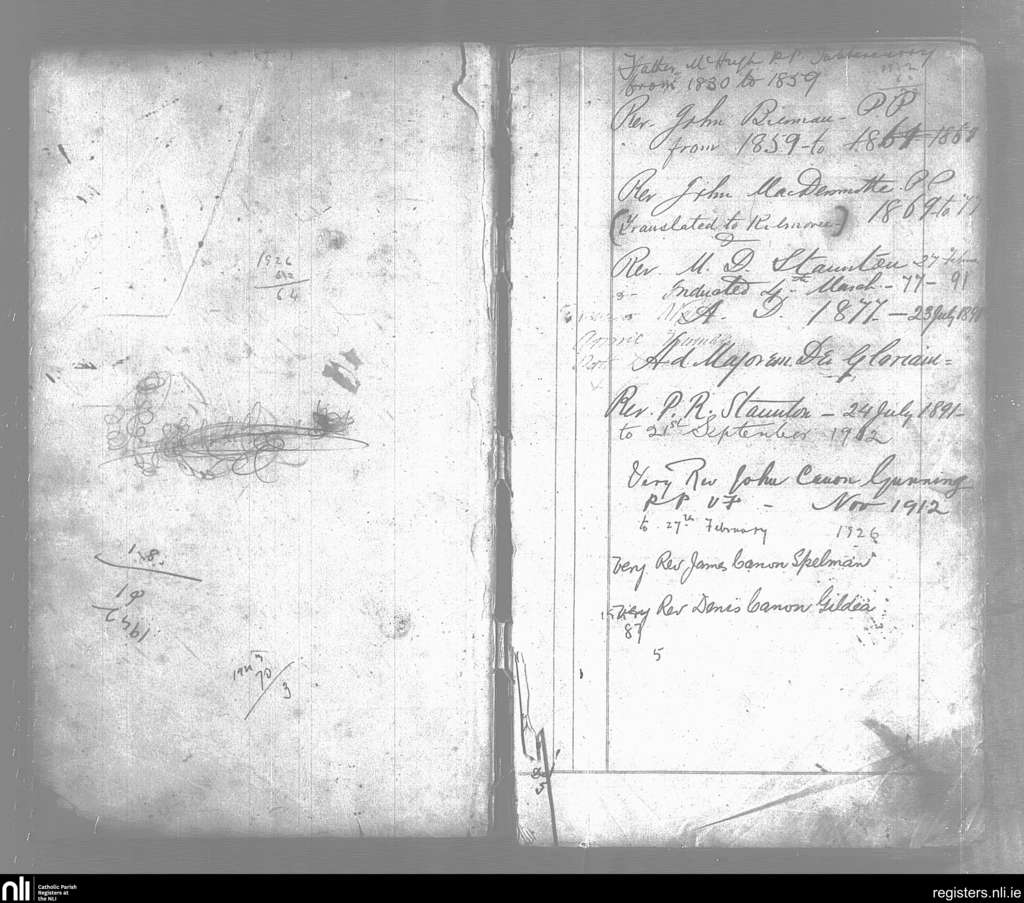 1926
64
1.8.
1942
3
Father McHugh P.P. Tubbercurry
from 1830 to 1859
Rev. John Brennan - P P
from 1859 - to 1861 1869
Rev John MacDermotte. P P
1869 to 77
(Translated to Kilmovee)
Rev. M. D. Staunton 27
Inducted 4th March - 77 - 91
A. D. 1877 - 23 July 1891
Ad Majorem Dei Gloriam =
Rev. P. R. Staunton - 24 July 1891 -
to 21st September 1912
Very Rev John Canon Gunning
P P V F - Nov 1912
to 27th February 1926
Very Rev James Canon Spelman
Very Rev Denis Canon Gildea
87
5
nli
Catholic Parish
Registers at
the NLI
registers.nli.ie